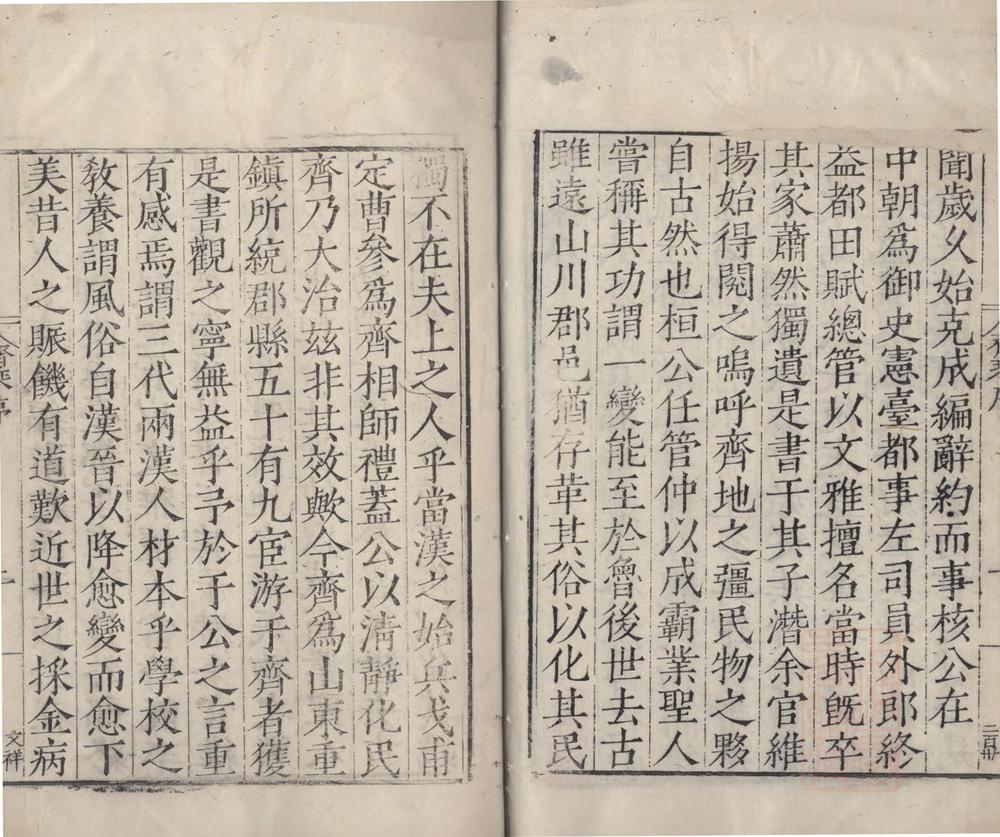 聞歲久始克成編辭約而事核公在
中朝爲御史憲臺都事左司員外郎終
益都田賦總管以文雅擅名當時旣卒
其家蕭然獨遺是書于其子潛余官維
揚始得閱之嗚呼齊地之彊民物之夥
自古然也桓公任管仲以成霸業聖人
嘗稱其功謂一變能至於魯後世去古
雖遠山川郡邑猶存革其俗以化其民
獨不在夫上之人乎當漢之始兵戈甫
定曹參爲齊相師禮蓋公以清靜化民
齊乃大治兹非其效歟今齊爲山東重
鎮所統郡縣五十有九宦游于齊者獲
是書觀之寧無益乎予於于公之言重
有感焉謂三代兩漢人材本乎學校之
教養謂風俗自漢晉以降愈變而愈下
美昔人之賑饑有道歎近世之採金病
文祥